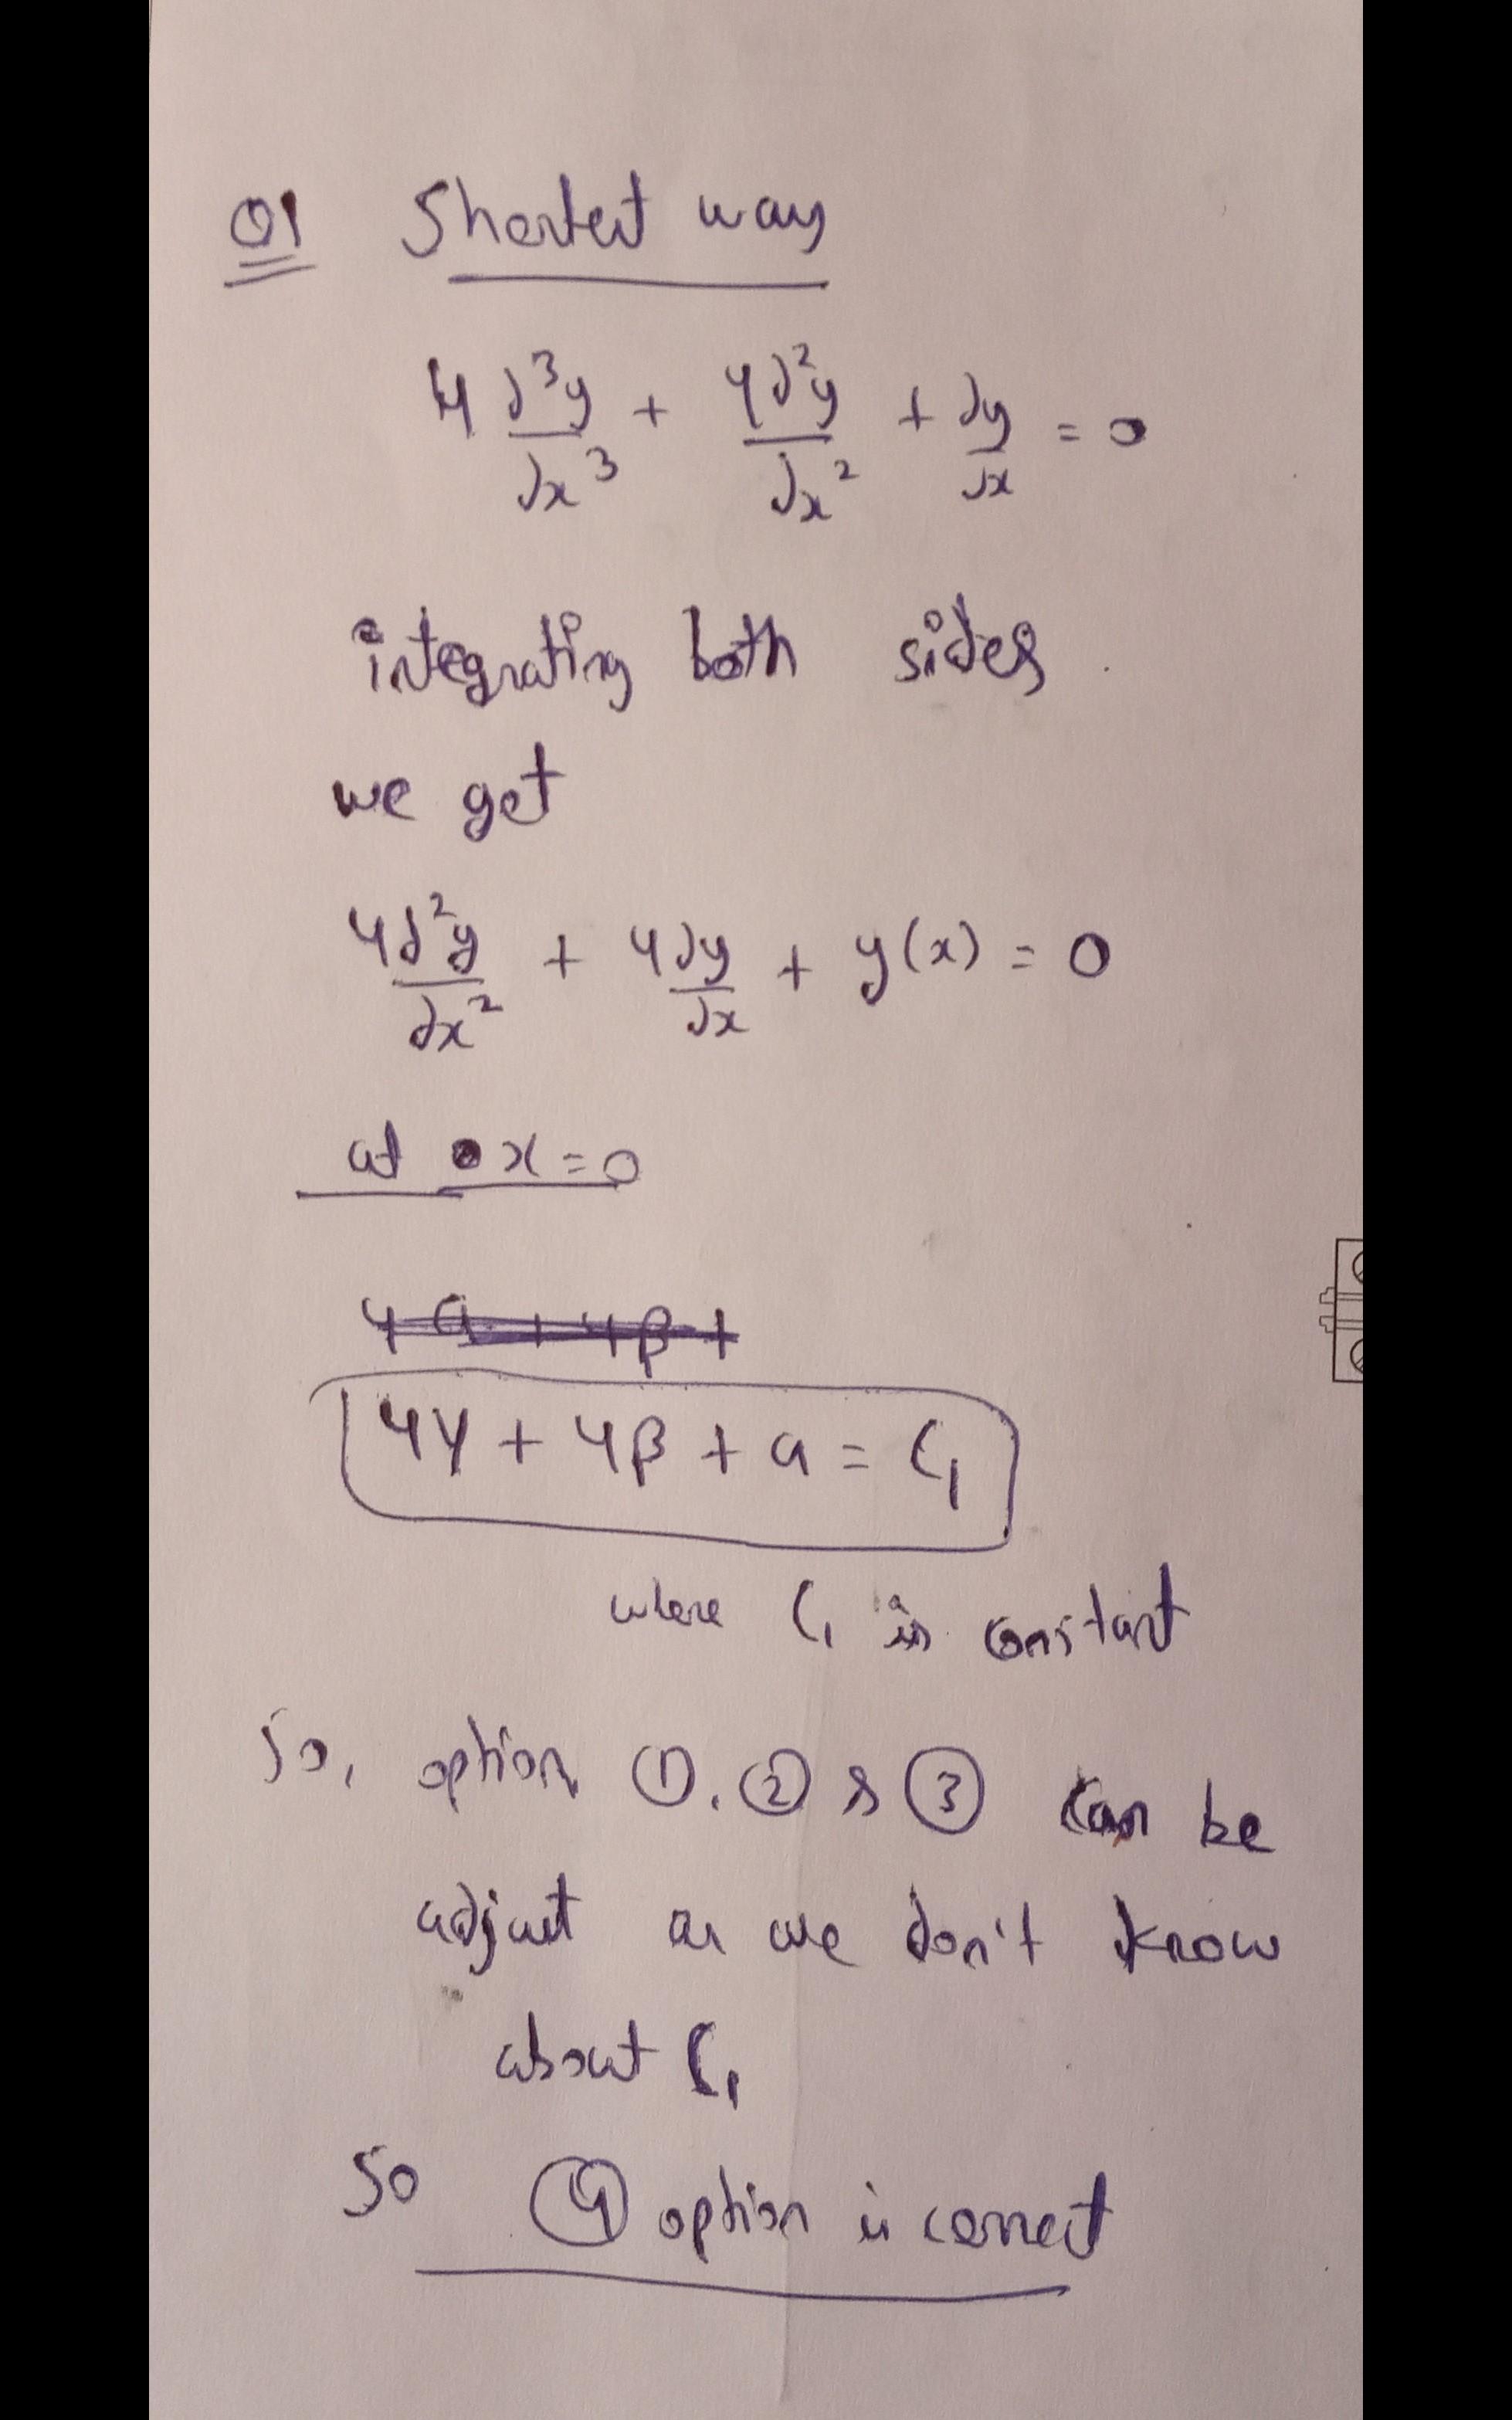 Q1 Shortest way
4 d³y/dx³ + 4d²y/dx² + dy/dx = 0
integrating both sides
we get
4d²y/dx² + 4dy/dx + y(x) = 0
at x=0
4a + 4β +
4γ + 4β + a = C₁
where C₁ is constant
So, option ①, ② & ③ can be
adjust as we don't know
about C₁
So ④ option is correct